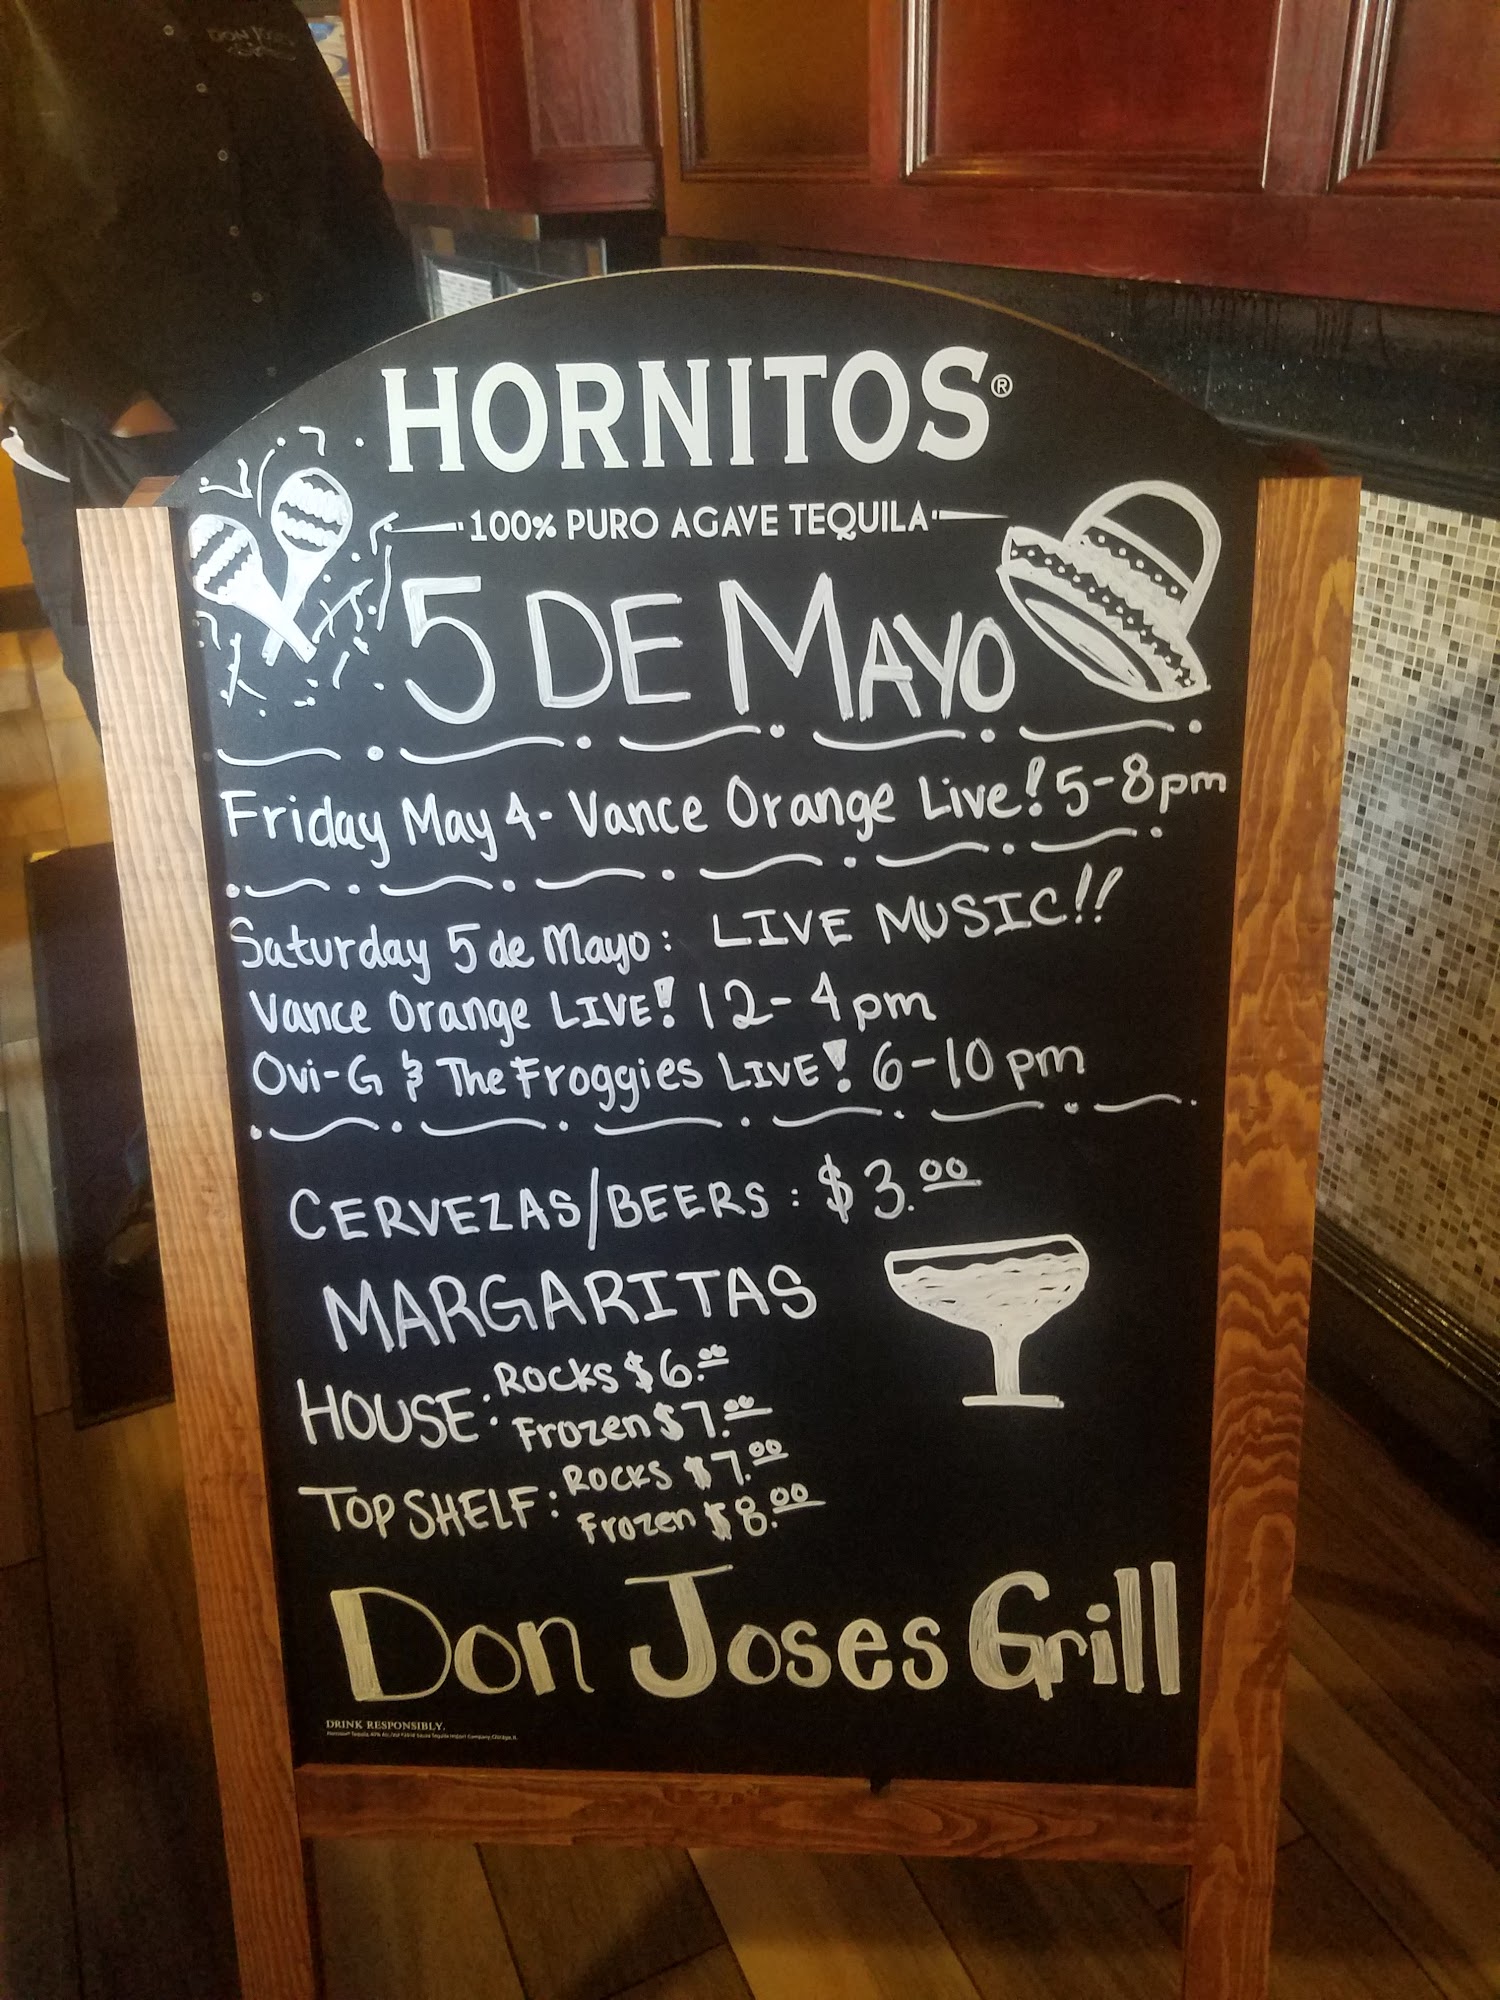 DON JOSE'S
HORNITOS®
100% PURO AGAVE TEQUILA
5 DE MAYO
Friday May 4 - Vance Orange Live! 5-8pm
Saturday 5 de Mayo: LIVE MUSIC!!
Vance Orange LIVE! 12-4pm
Ovi-G & The Froggies LIVE! 6-10pm
CERVEZAS/BEERS: $3.00
MARGARITAS
HOUSE: ROCKS $6.00
Frozen $7.00
TOP SHELF: ROCKS $7.00
Frozen $8.00
Don Joses Grill
DRINK RESPONSIBLY.